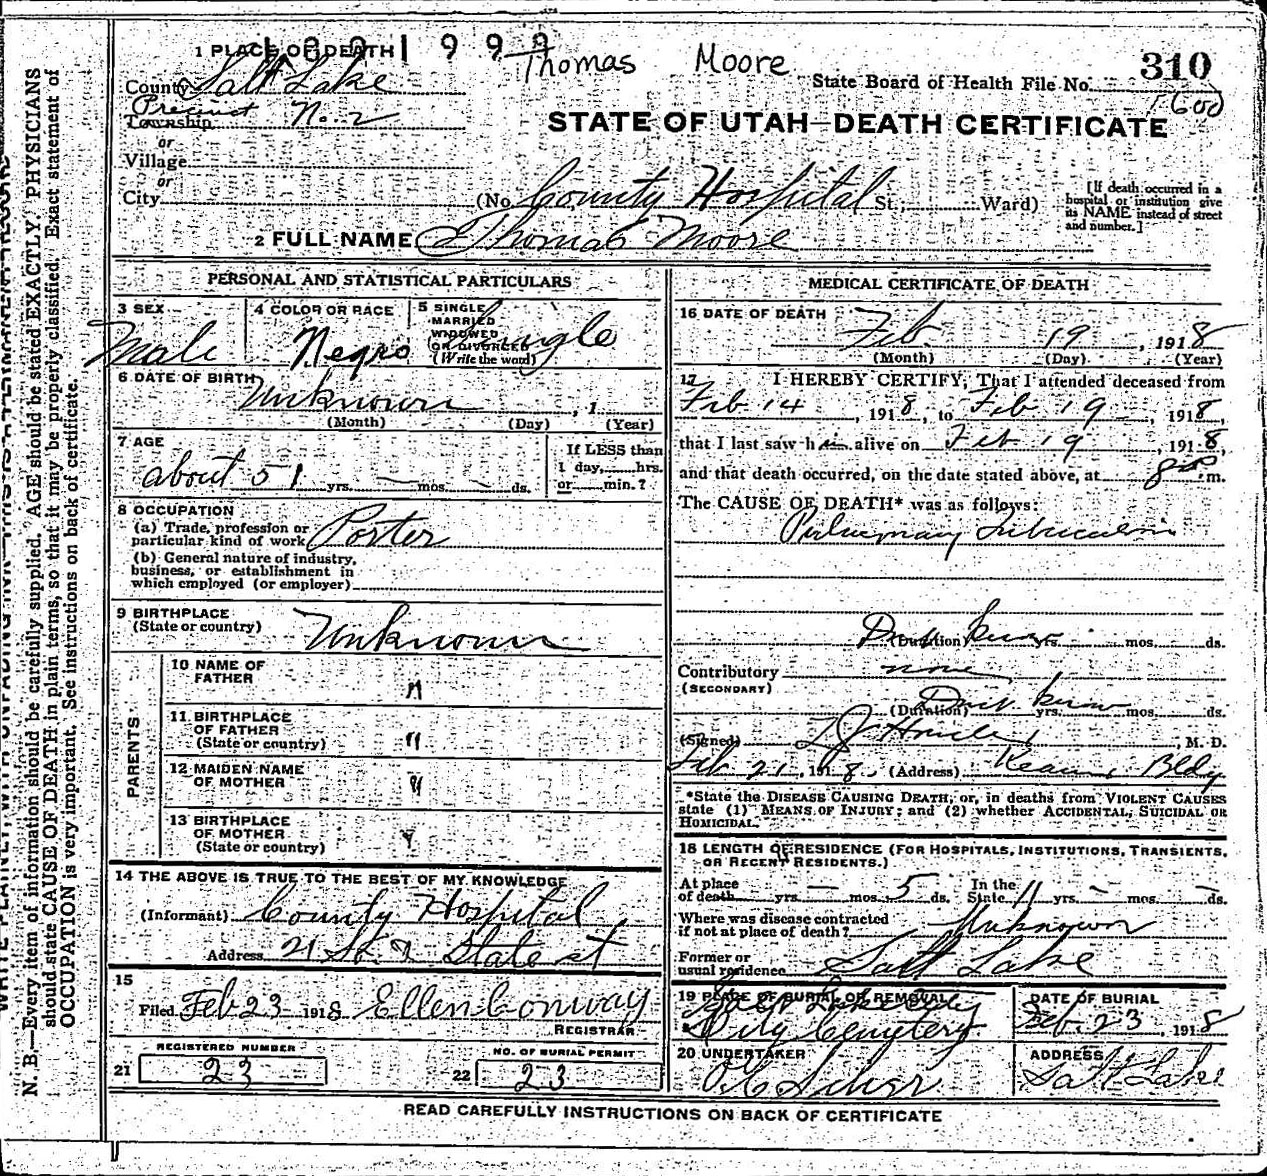 1 PLACE OF DEATH
1 9 9 9
Thomas Moore
State Board of Health File No. 310
1600
County Salt Lake
Precinct
Township No. 2
or
Village
or
City
STATE OF UTAH—DEATH CERTIFICATE
(No. County Hospital St.; Ward)
[If death occurred in a hospital or institution give its NAME instead of street and number.]
2 FULL NAME Thomas Moore
PERSONAL AND STATISTICAL PARTICULARS
3 SEX Male
4 COLOR OR RACE Negro
5 SINGLE MARRIED WIDOWED OR DIVORCED (Write the word) Single
6 DATE OF BIRTH Unknown , 1
(Month) (Day) (Year)
7 AGE
about 51 yrs. — mos. — ds.
If LESS than 1 day, hrs. or min.?
8 OCCUPATION
(a) Trade, profession or particular kind of work Porter
(b) General nature of industry, business, or establishment in which employed (or employer)
9 BIRTHPLACE
(State or country) Unknown
PARENTS
10 NAME OF FATHER "
11 BIRTHPLACE OF FATHER (State or country) "
12 MAIDEN NAME OF MOTHER "
13 BIRTHPLACE OF MOTHER (State or country) "
14 THE ABOVE IS TRUE TO THE BEST OF MY KNOWLEDGE
(Informant) County Hospital
Address 21 So. & State st
15
Filed Feb 23 1918 Ellen Conway
REGISTRAR
REGISTERED NUMBER
21 23
NO. OF BURIAL PERMIT
22 23
MEDICAL CERTIFICATE OF DEATH
16 DATE OF DEATH
Feb. 19 , 1918
(Month) (Day) (Year)
17 I HEREBY CERTIFY, That I attended deceased from
Feb 14 , 1918, to Feb 19 , 1918,
that I last saw him alive on Feb 19 , 1918,
and that death occurred, on the date stated above, at 8 m.
The CAUSE OF DEATH* was as follows:
Pulmonary tuberculosis
Don't know (Duration) yrs. mos. ds.
Contributory none
(SECONDARY)
Don't know (Duration) yrs. mos. ds.
(Signed) M. D.
Feb 21, 1918. (Address) Kearns Bldg
*State the DISEASE CAUSING DEATH, or, in deaths from VIOLENT CAUSES state (1) MEANS OF INJURY; and (2) whether ACCIDENTAL, SUICIDAL OR HOMICIDAL.
18 LENGTH OF RESIDENCE (FOR HOSPITALS, INSTITUTIONS, TRANSIENTS, OR RECENT RESIDENTS.)
At place of death yrs. — mos. 5 ds. In the State 11 yrs. — mos. — ds.
Where was disease contracted if not at place of death? Unknown
Former or usual residence Salt Lake
19 PLACE OF BURIAL OR REMOVAL
City Cemetery
DATE OF BURIAL
Feb. 23 , 1918
20 UNDERTAKER
ADDRESS
Salt Lake
READ CAREFULLY INSTRUCTIONS ON BACK OF CERTIFICATE
N. B.—Every item of information should be carefully supplied. AGE should be stated EXACTLY. PHYSICIANS
should state CAUSE OF DEATH in plain terms, so that it may be properly classified. Exact statement of
OCCUPATION is very important. See instructions on back of certificate.